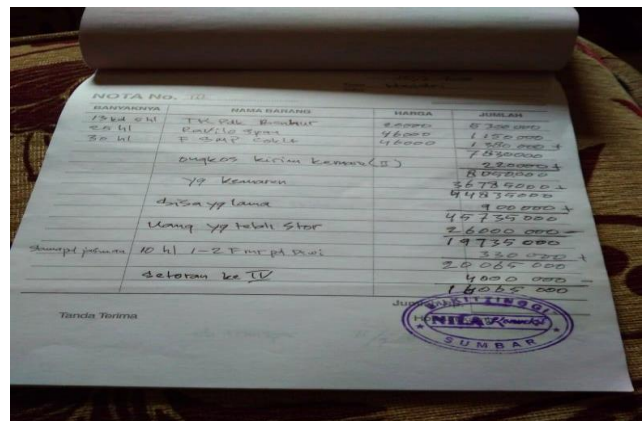 NOTA No. III
BANYAKNYA NAMA BARANG HARGA JUMLAH
TK Pdk 5300 000
25 hl Rok 46000 1150 000
30 hl P SMP coklt 46000 1380 000 +
7830000
ongkos kirim kemaren (II) 220000 +
8050000
yg kemaren 36785000 +
44835000
sisa yg lama 900 000 +
45735000
Uang yg telah stor 26000 000 -
19735 000
10 hl 1-2 330 000 +
20065 000
setoran ke IV 4000 000 -
16065 000
Tanda Terima
BUKITTINGGI
NILA Konveksi
SUMBAR